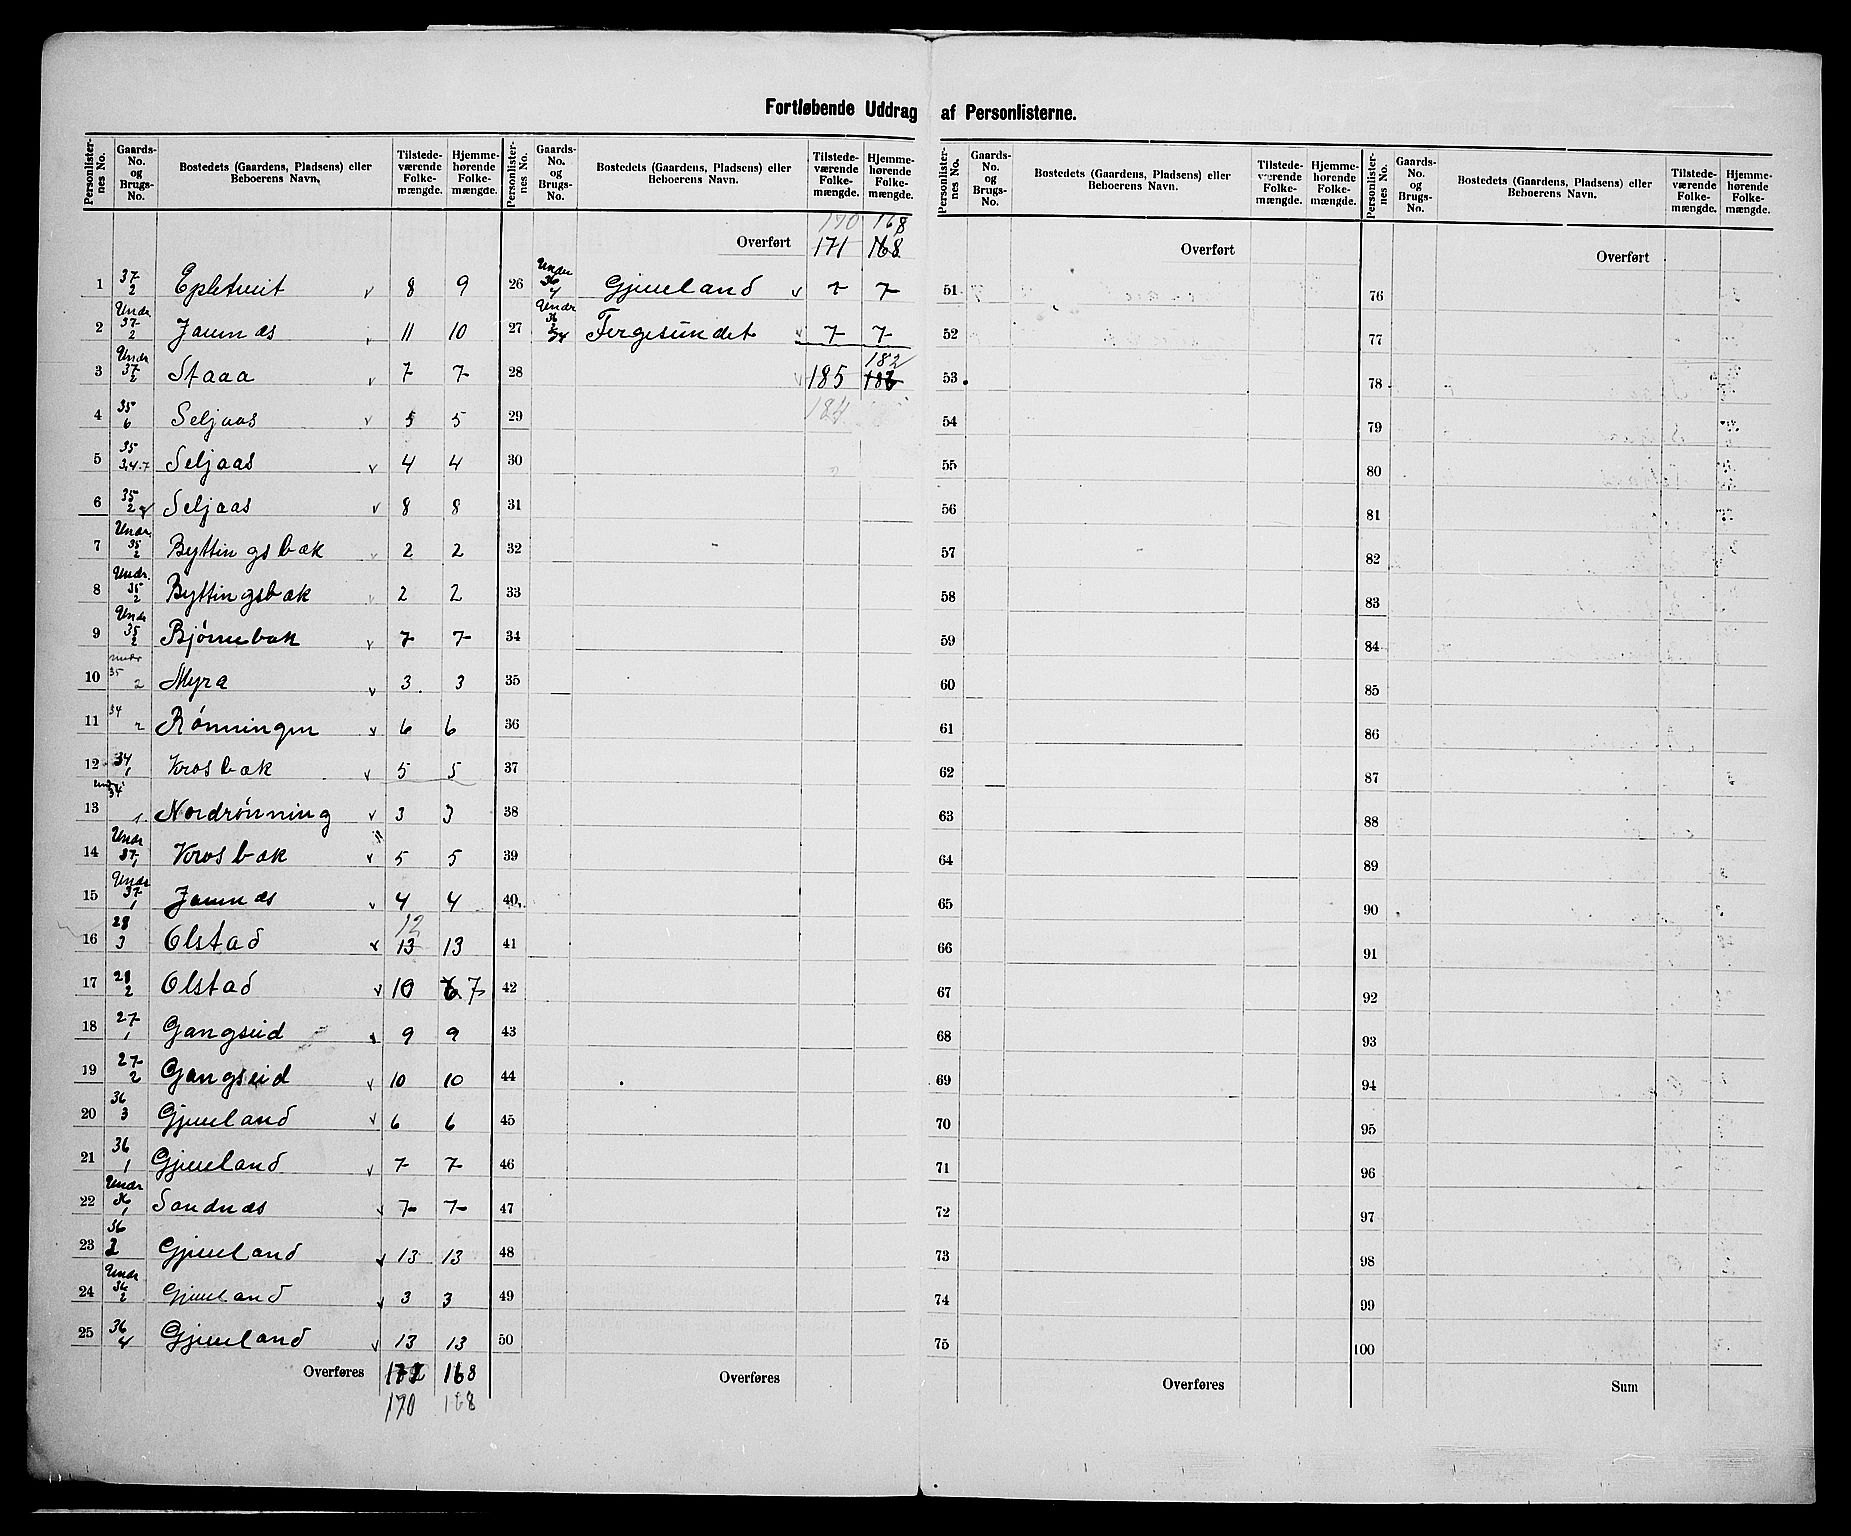 Fortløbende Uddrag af Personlisterne.
Personlister-nes No. Gaards-No. og Brugs-No. Bostedets (Gaardens, Pladsens) eller Beboerens Navn. Tilstede-værende Folke-mængde. Hjemme-hørende Folke-mængde.
1 37/2 Epletveit v 8 9
2 Under 37/2 Jaumnæs v 11 10
3 Under 37/2 Staaa v 7 7
4 35/6 Seljaas v 5 5
5 35/3,4,7 Seljaas v 4 4
6 35/2 Seljaas v 8 8
7 Under 35/2 Byttingsbæk v 2 2
8 Under 35/2 Byttingsbæk v 2 2
9 Under 35/2 Bjørnebæk v 7 7
10 under 35/2 Myra v 3 3
11 34/2 Rønningen v 6 6
12 34/1 Krosbæk v 5 5
13 under 34/1 Nordrønning v 3 3
14 Under 37/1 Krosbæk v 5 5
15 Under 37/1 Jaumnæs v 4 4
16 28/3 Olstad v 12 13 13
17 28/2 Olstad v 10 6 7
18 27/1 Gangseid v 9 9
19 27/2 Gangseid v 10 10
20 36/3 Gjuveland v 6 6
21 36/1 Gjuveland v 7 7
22 Under 36/1 Sandnæs v 7 7
23 36/2 Gjuveland v 13 13
24 Under 36/2 Gjuveland v 3 3
25 36/4 Gjuveland v 13 13
Overføres 171 168
170 168
Personlister-nes No. Gaards-No. og Brugs-No. Bostedets (Gaardens, Pladsens) eller Beboerens Navn. Tilstede-værende Folke-mængde. Hjemme-hørende Folke-mængde.
170 168
Overført 171 168
26 Under 36/4 Gjuveland v 7 7
27 Under 36 Fergesundet v 7 7
182
28 v 185
29 184
30
31
32
33
34
35
36
37
38
39
40
41
42
43
44
45
46
47
48
49
50
Overføres
Personlister-nes No. Gaards-No. og Brugs-No. Bostedets (Gaardens, Pladsens) eller Beboerens Navn. Tilstede-værende Folke-mængde. Hjemme-hørende Folke-mængde.
Overført
51
52
53
54
55
56
57
58
59
60
61
62
63
64
65
66
67
68
69
70
71
72
73
74
75
Overføres
Personlister-nes No. Gaards-No. og Brugs-No. Bostedets (Gaardens, Pladsens) eller Beboerens Navn. Tilstede-værende Folke-mængde. Hjemme-hørende Folke-mængde.
Overført
76
77
78
79
80
81
82
83
84
85
86
87
88
89
90
91
92
93
94
95
96
97
98
99
100
Sum